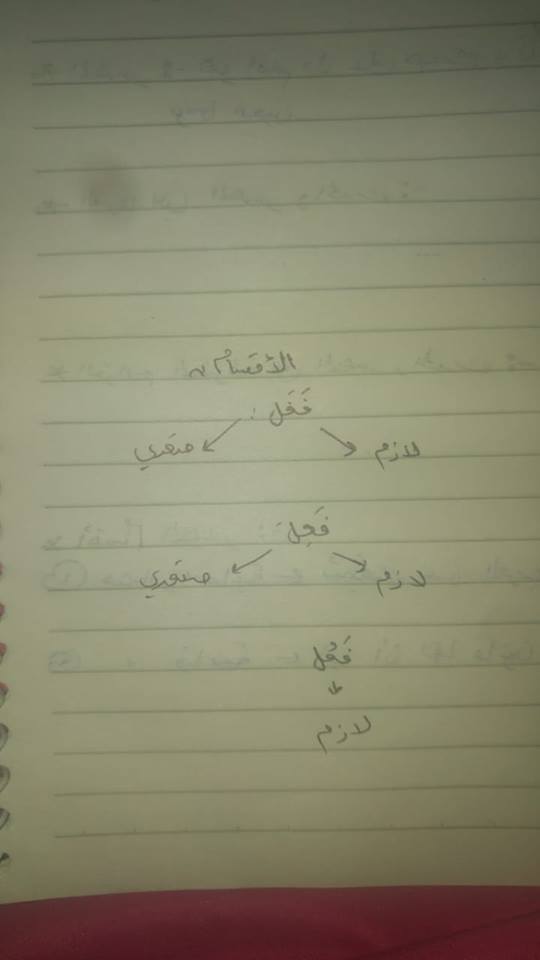 الأقسام
فَعَل :
لازم متعدي
فَعِل
لازم متعدي
فَعُل
لازم